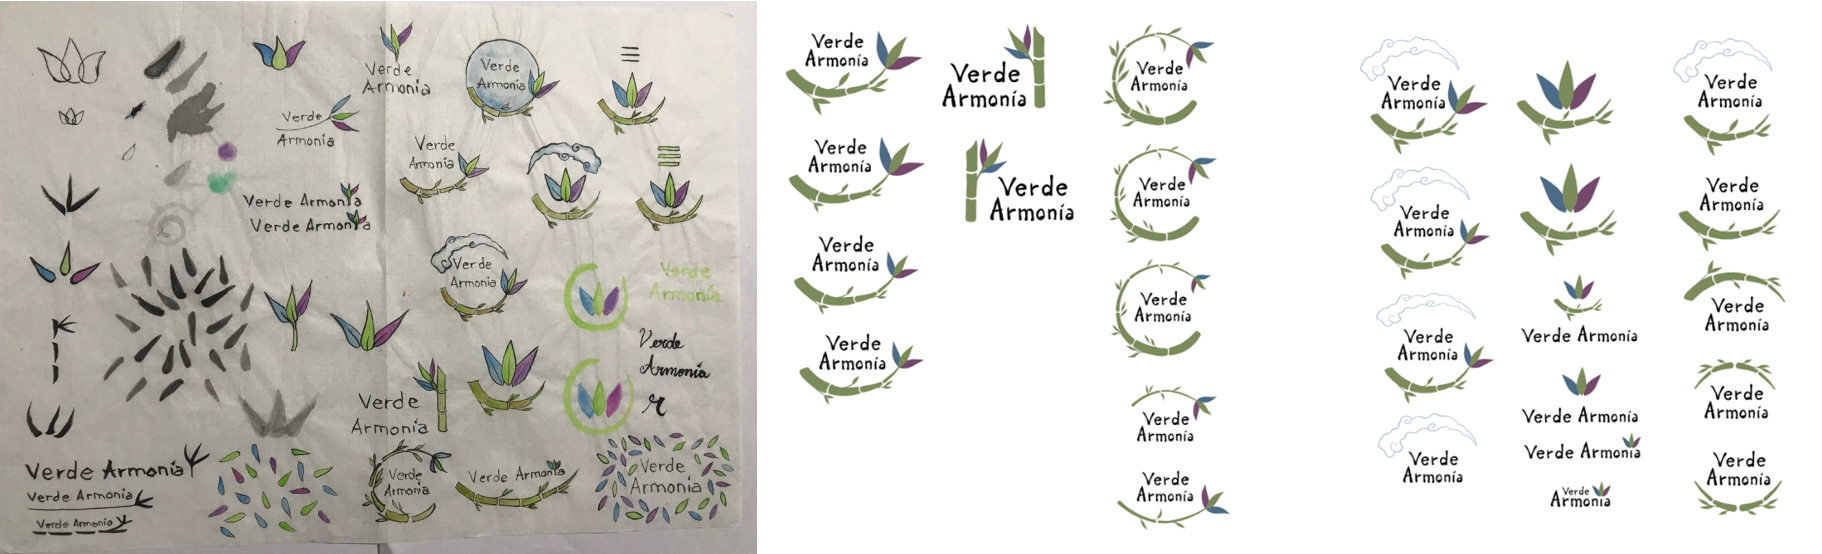 Verde
Armonía
Verde
Armonía
Verde
Armonía
Verde
Armonía
Verde Armonía
Verde Armonía
Verde
Armonía
Verde
Armonía
Verde
Armonía
r
Verde
Armonía
Verde Armonía
Verde Armonía
Verde Armonía
Verde
Armonía
Verde Armonía
Verde
Armonía
Verde
Armonía
Verde
Armonía
Verde
Armonía
Verde
Armonía
Verde
Armonía
Verde
Armonía
Verde
Armonía
Verde
Armonía
Verde
Armonía
Verde
Armonía
Verde
Armonía
Verde
Armonía
Verde
Armonía
Verde
Armonía
Verde
Armonía
Verde Armonía
Verde Armonía
Verde Armonía
Verde
Armonía
Verde
Armonía
Verde
Armonía
Verde
Armonía
Verde
Armonía
Verde
Armonía